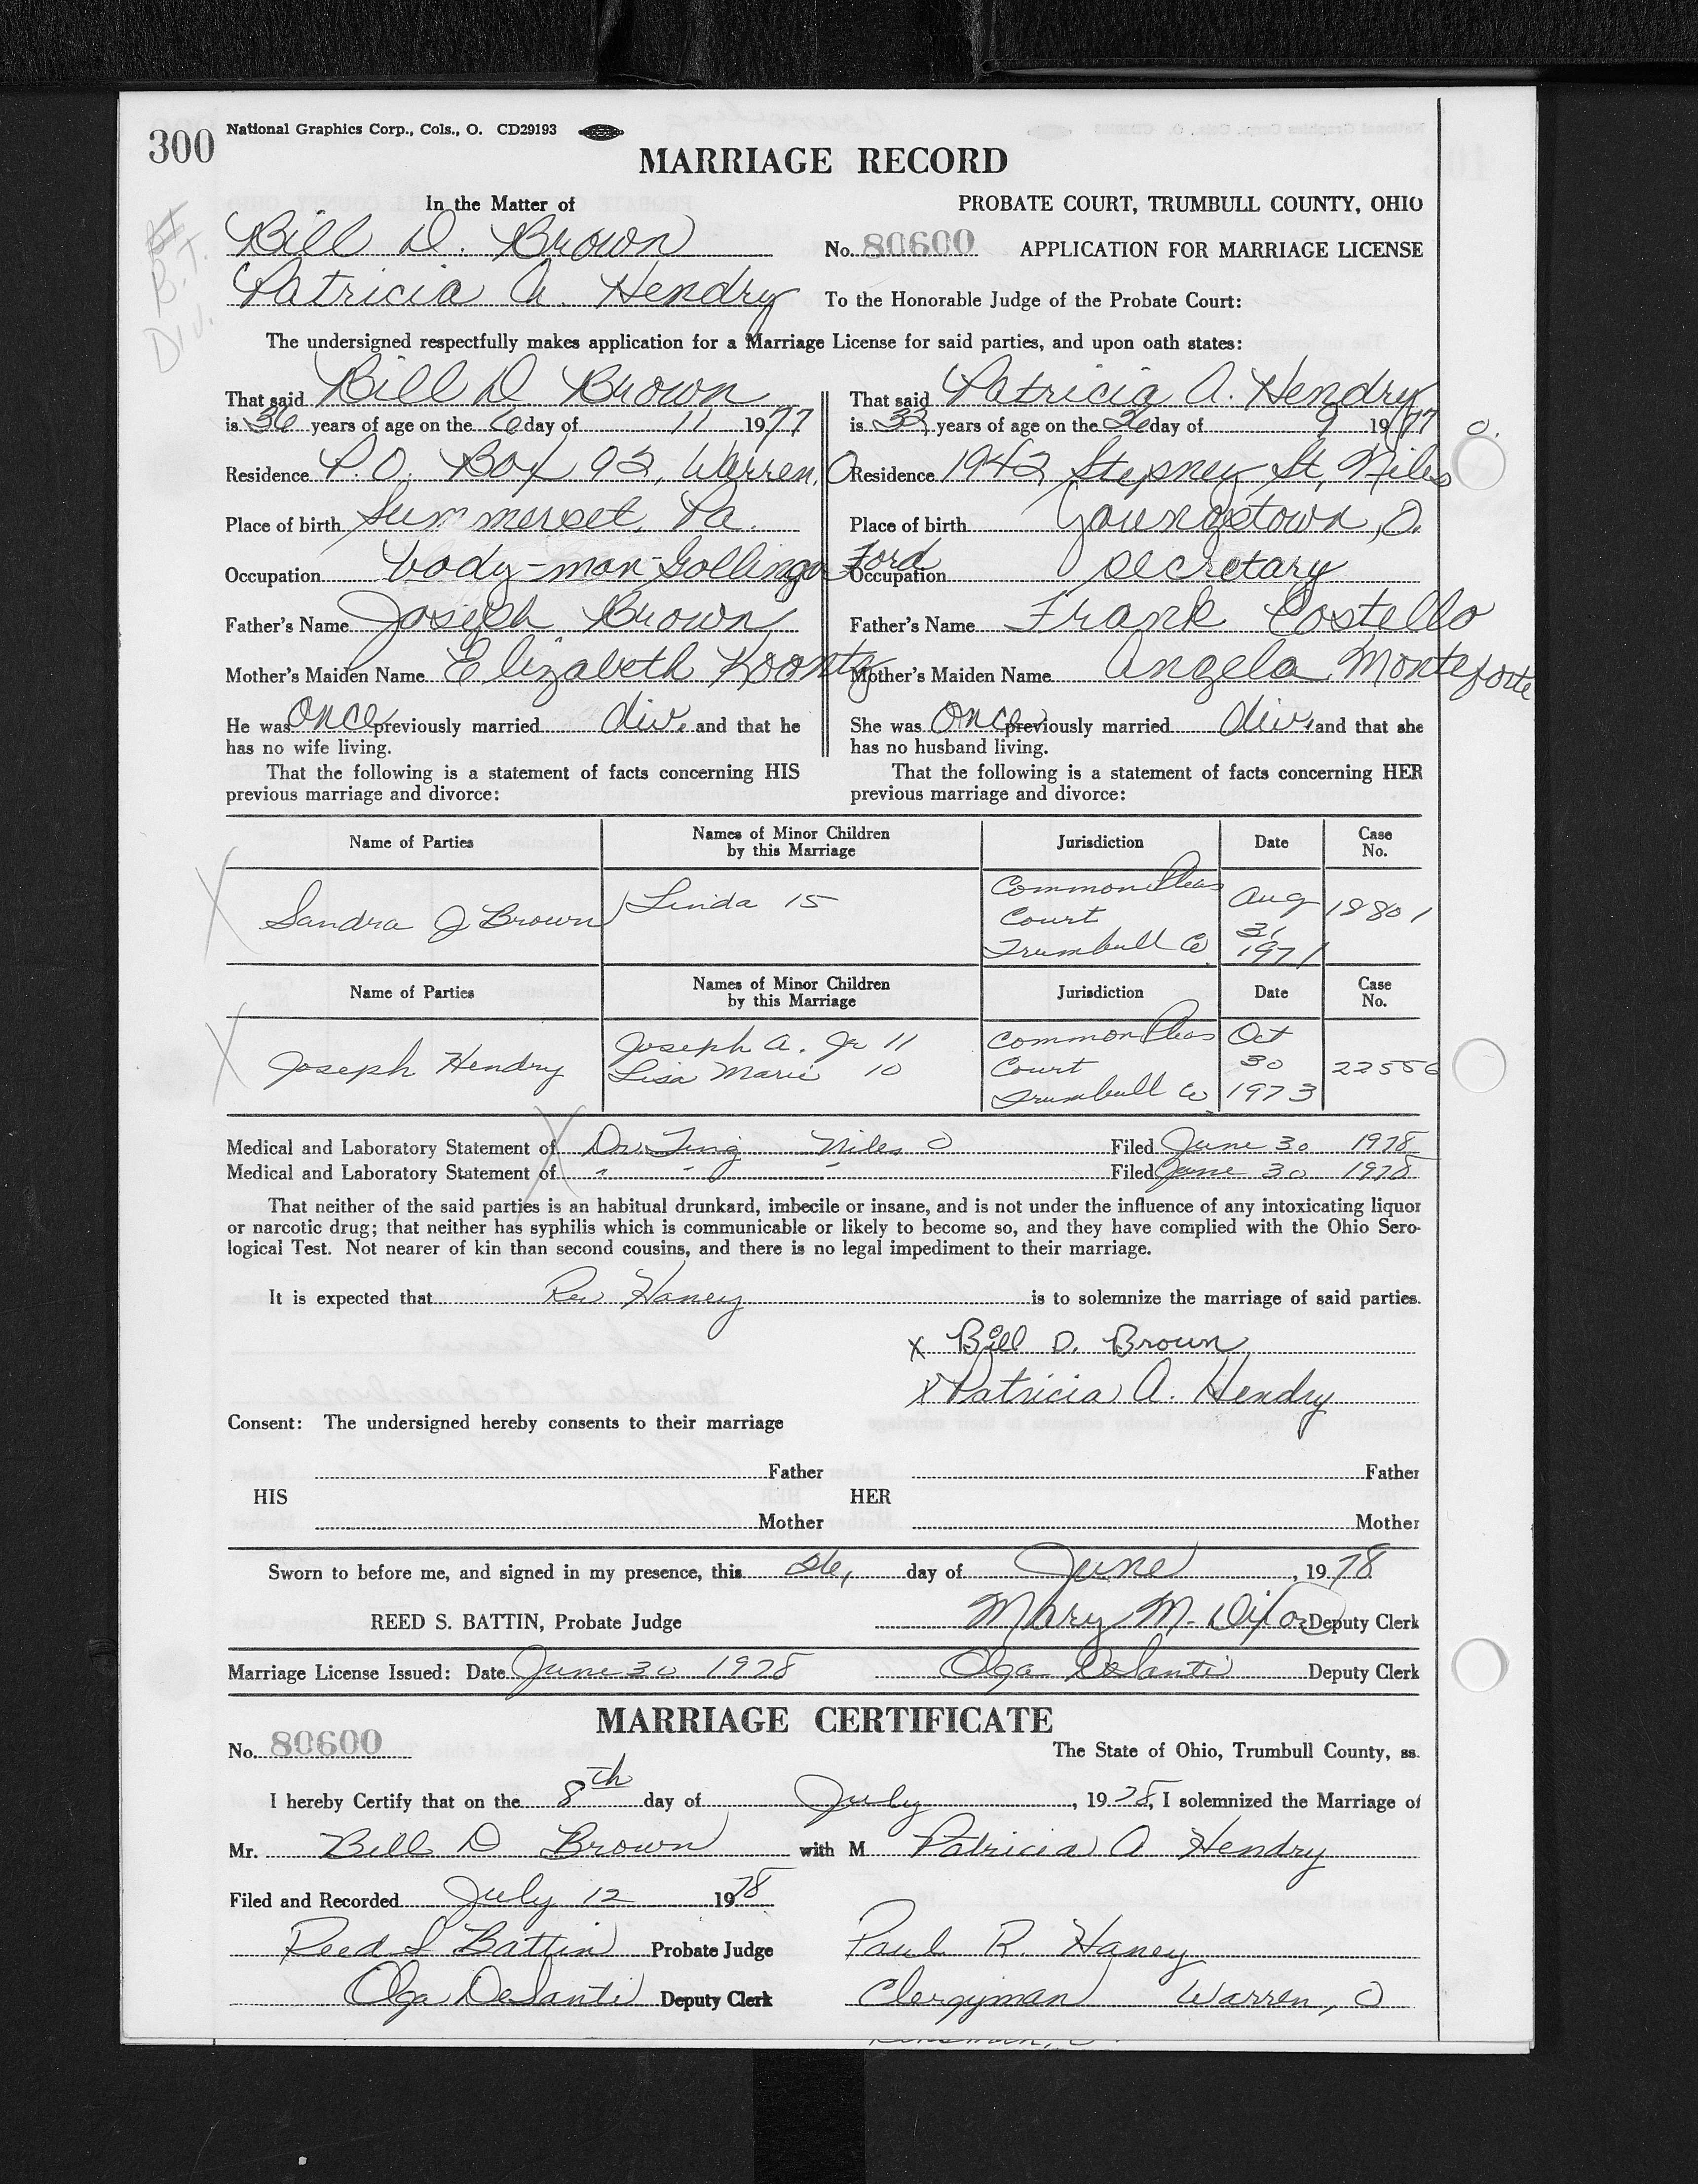 300 National Graphics Corp., Cols., O. CD29193
MARRIAGE RECORD
In the Matter of
PROBATE COURT, TRUMBULL COUNTY, OHIO
Bill D. Brown
No. 80600 APPLICATION FOR MARRIAGE LICENSE
B.T.
Div.
Patricia A. Hendry To the Honorable Judge of the Probate Court:
The undersigned respectfully makes application for a Marriage License for said parties, and upon oath states:
That said Bill D Brown
is 36 years of age on the 6 day of 11 1977
Residence P.O. Box 92, Warren, O
Place of birth Summerset, Pa.
Occupation body-man-Gollinger Ford
Father's Name Joseph Brown
Mother's Maiden Name Elizabeth Koontz
He was once previously married div. and that he
has no wife living.
That the following is a statement of facts concerning HIS
previous marriage and divorce:
That said Patricia A. Hendry
is 33 years of age on the 26 day of 9 1977
Residence 1942 Stepney St, Niles O.
Place of birth Youngstown, O.
Occupation secretary
Father's Name Frank Costello
Mother's Maiden Name Angela Monteforte
She was once previously married div. and that she
has no husband living.
That the following is a statement of facts concerning HER
previous marriage and divorce:
Name of Parties Names of Minor Children by this Marriage Jurisdiction Date Case No.
Sandra J Brown Linda 15 Common Pleas Court Trumbull Co. Aug 31 1971 18801
Name of Parties Names of Minor Children by this Marriage Jurisdiction Date Case No.
Joseph Hendry Joseph A. Jr 11 Lisa Marie 10 Common Pleas Court Trumbull Co. Oct 30 1973 22556
Medical and Laboratory Statement of Dr. Ting Niles O Filed June 30 1978
Medical and Laboratory Statement of " " " Filed June 30 1978
That neither of the said parties is an habitual drunkard, imbecile or insane, and is not under the influence of any intoxicating liquor
or narcotic drug; that neither has syphilis which is communicable or likely to become so, and they have complied with the Ohio Sero-
logical Test. Not nearer of kin than second cousins, and there is no legal impediment to their marriage.
It is expected that Rev Haney is to solemnize the marriage of said parties.
x Bill D. Brown
x Patricia A. Hendry
Consent: The undersigned hereby consents to their marriage
Father Father
HIS HER
Mother Mother
Sworn to before me, and signed in my presence, this 26, day of June, 1978
REED S. BATTIN, Probate Judge Mary M. Dixon Deputy Clerk
Marriage License Issued: Date June 30 1978 Olga DeSanti Deputy Clerk
MARRIAGE CERTIFICATE
No. 80600 The State of Ohio, Trumbull County, ss.
I hereby Certify that on the 8th day of July, 1978, I solemnized the Marriage of
Mr. Bill D Brown with M Patricia A Hendry
Filed and Recorded July 12 1978
Reed S Battin Probate Judge Paul R. Haney
Olga DeSanti Deputy Clerk Clergyman Warren, O